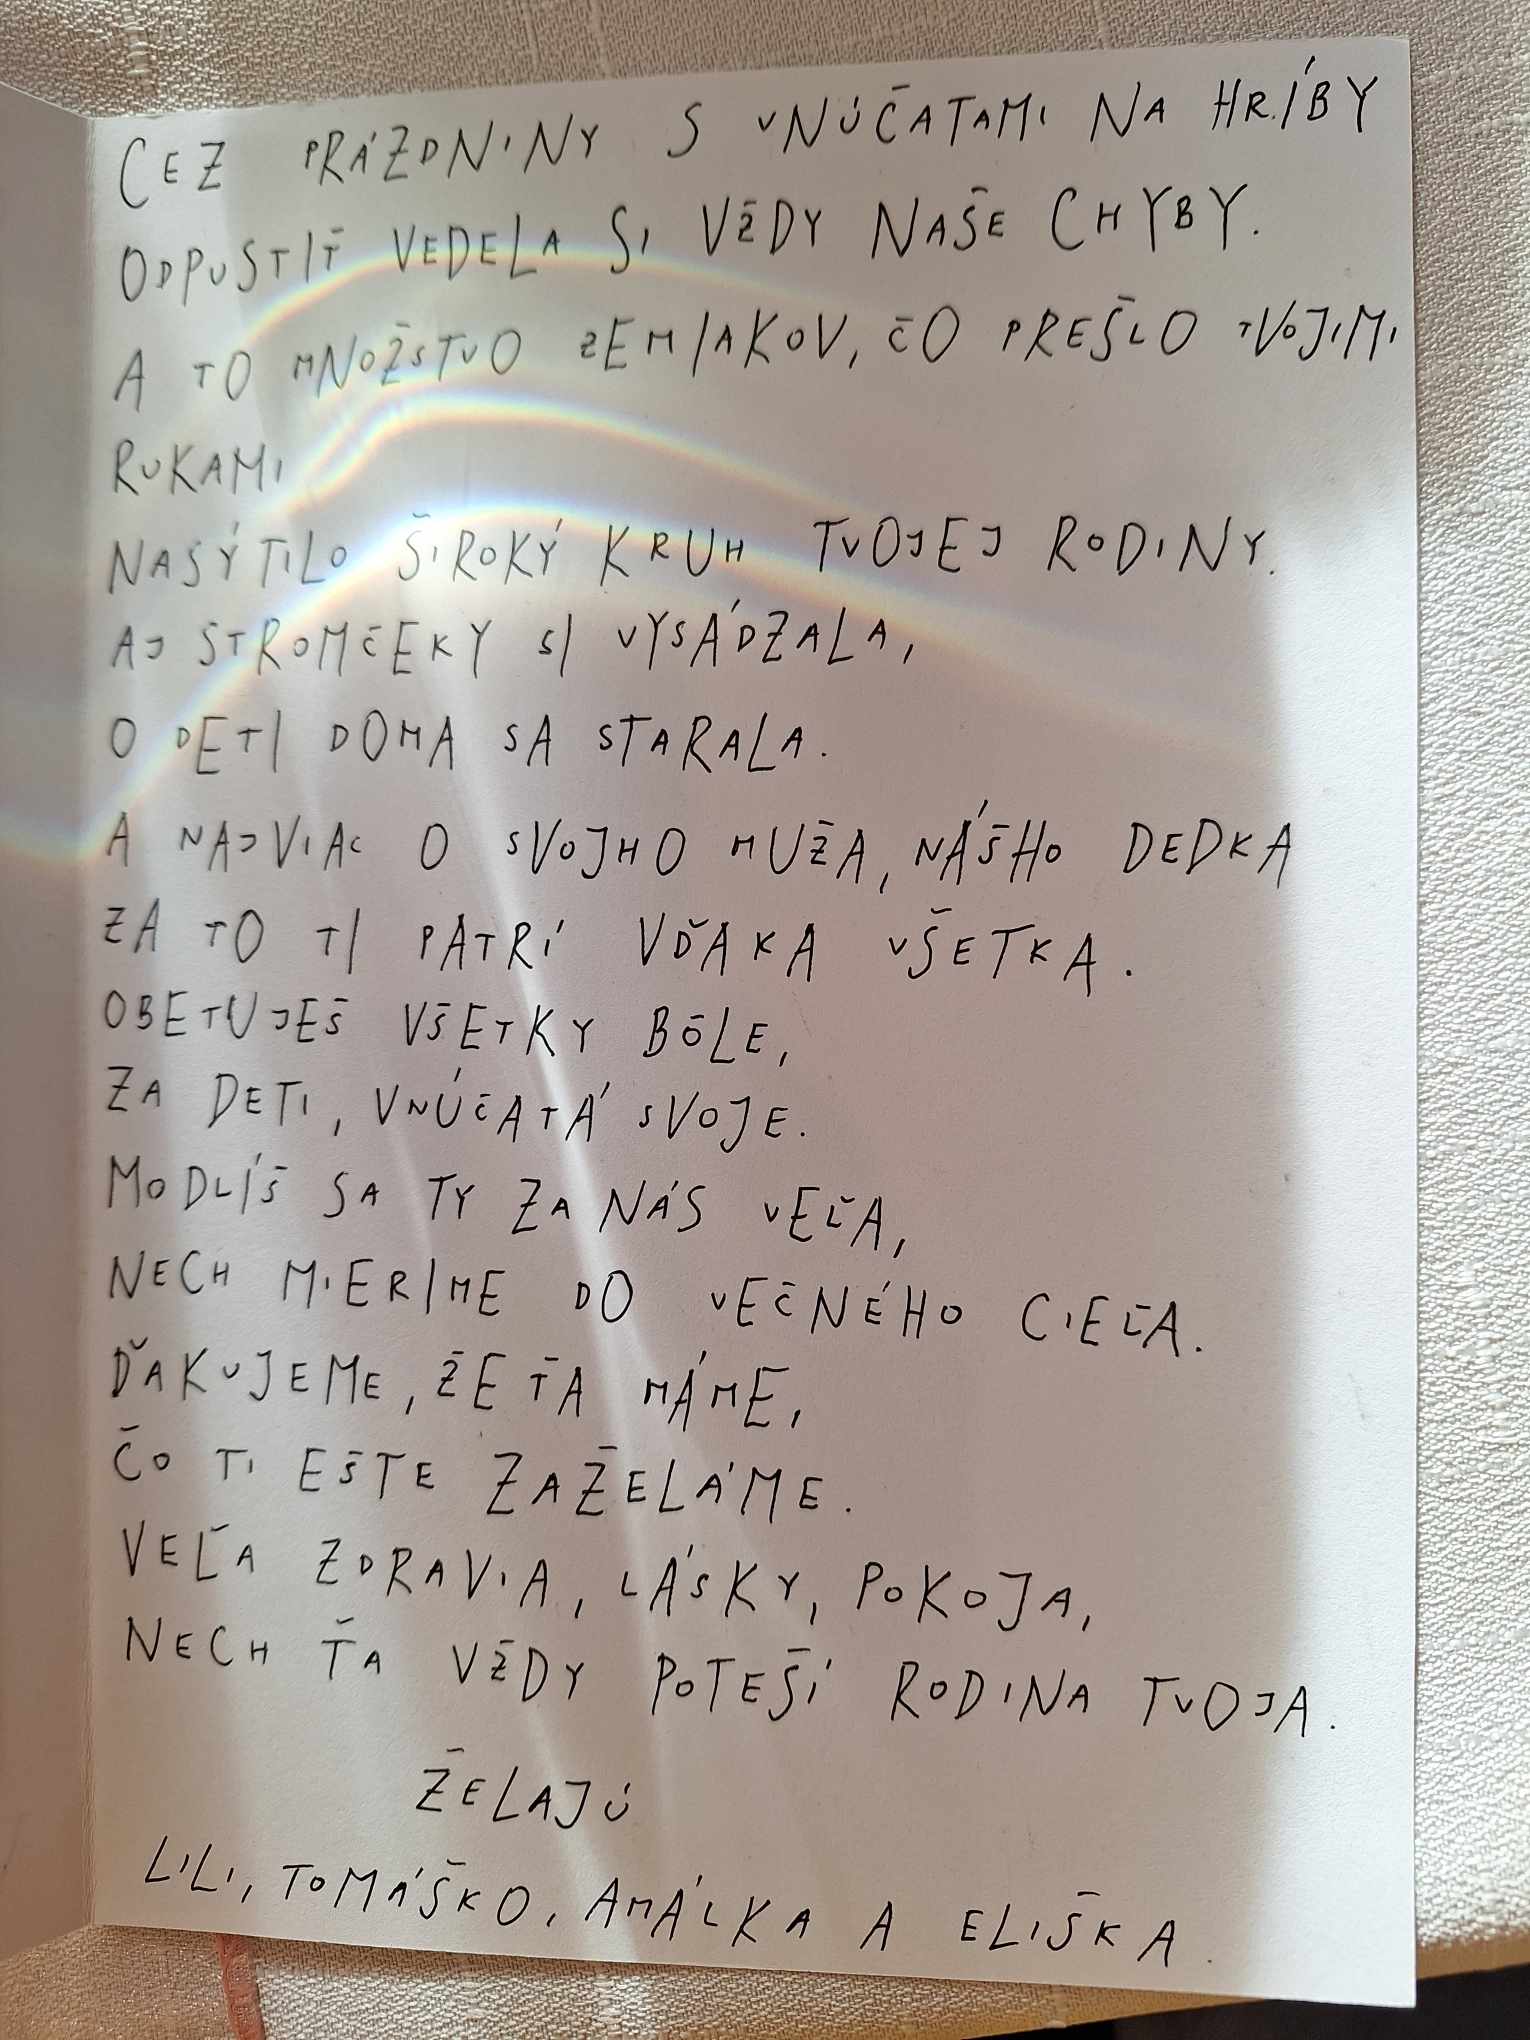 CEZ PRÁZDNINY S VNÚČATAMI NA HRÍBY
ODPUSTIŤ VEDELA SI VŽDY NAŠE CHYBY.
A TO MNOŽSTVO ZEMIAKOV, ČO PREŠLO TVOJIMI
RUKAMI
NASÝTILO ŠIROKÝ KRUH TVOJEJ RODINY.
AJ STROMČEKY SI VYSÁDZALA,
O DETI DOMA SA STARALA.
A NAJVIAC O SVOJHO MUŽA, NÁŠHO DEDKA
ZA TO TI PATRÍ VĎAKA VŠETKA.
OBETUJEŠ VŠETKY BÔLE,
ZA DETI, VNÚČATÁ SVOJE.
MODLÍŠ SA TY ZA NÁS VEĽA,
NECH MIERIME DO VEČNÉHO CIEĽA.
ĎAKUJEME, ŽE ŤA MÁME,
ČO TI EŠTE ZAŽELÁME.
VEĽA ZDRAVIA, LÁSKY, POKOJA,
NECH ŤA VŽDY POTEŠÍ RODINA TVOJA.
ŽELAJÚ
LILI, TOMÁŠKO, AMÁLKA A ELIŠKA.